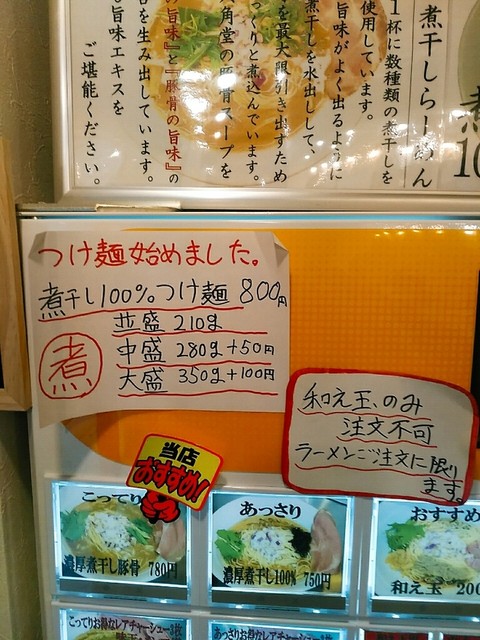 煮干しらーめん
1杯に数種類の煮干しを
使用しています。
旨味がよく出るように
煮干しを水出しして、
を最大限引き出すため
っくりと煮込んでいます。
角堂の豚骨スープを
の旨味』と『豚骨の旨味』の
を生み出しています。
旨味エキスを
ご堪能ください。
つけ麺始めました。
煮干し100%つけ麺 800円
並盛 210g
中盛 280g+50円
大盛 350g+100円
煮
和え玉、のみ
注文不可
ラーメンご注文に限り
ます。
当店
おすすめ!
こってり
濃厚煮干し豚骨 780円
あっさり
濃厚煮干し100% 750円
おすすめ
和え玉 200
こってりお得なレアチャーシュー3枚
あっさりお得なレアチャーシュー3枚